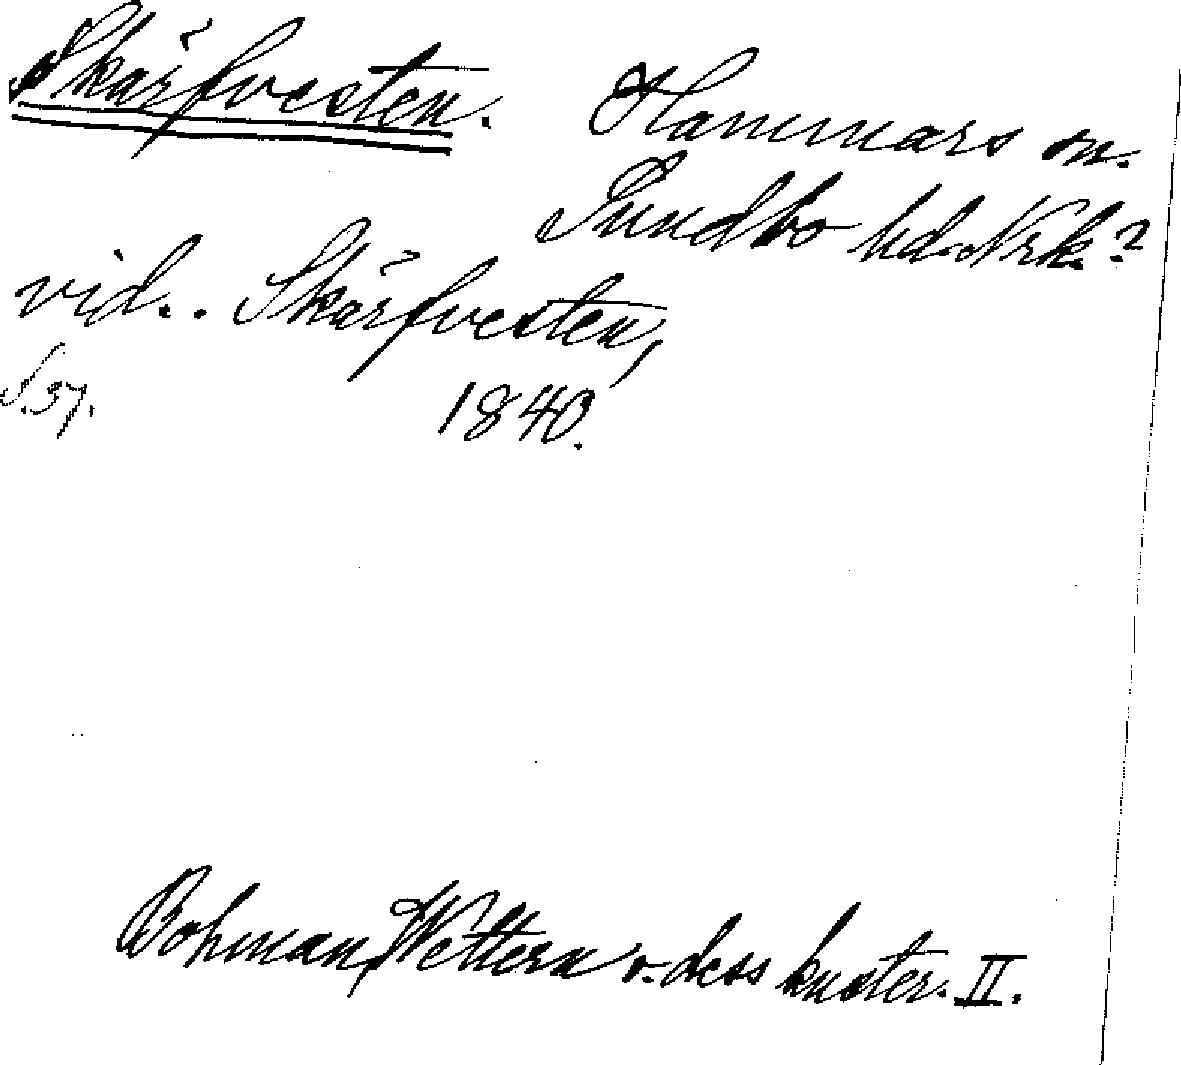 Skärfvesten. Hammars sn.
Sundbo hd. Nrk.?
vid.. Skärfvesten,
S. 57. 1840.
Bohman, Wettern o. dess kuster. II.